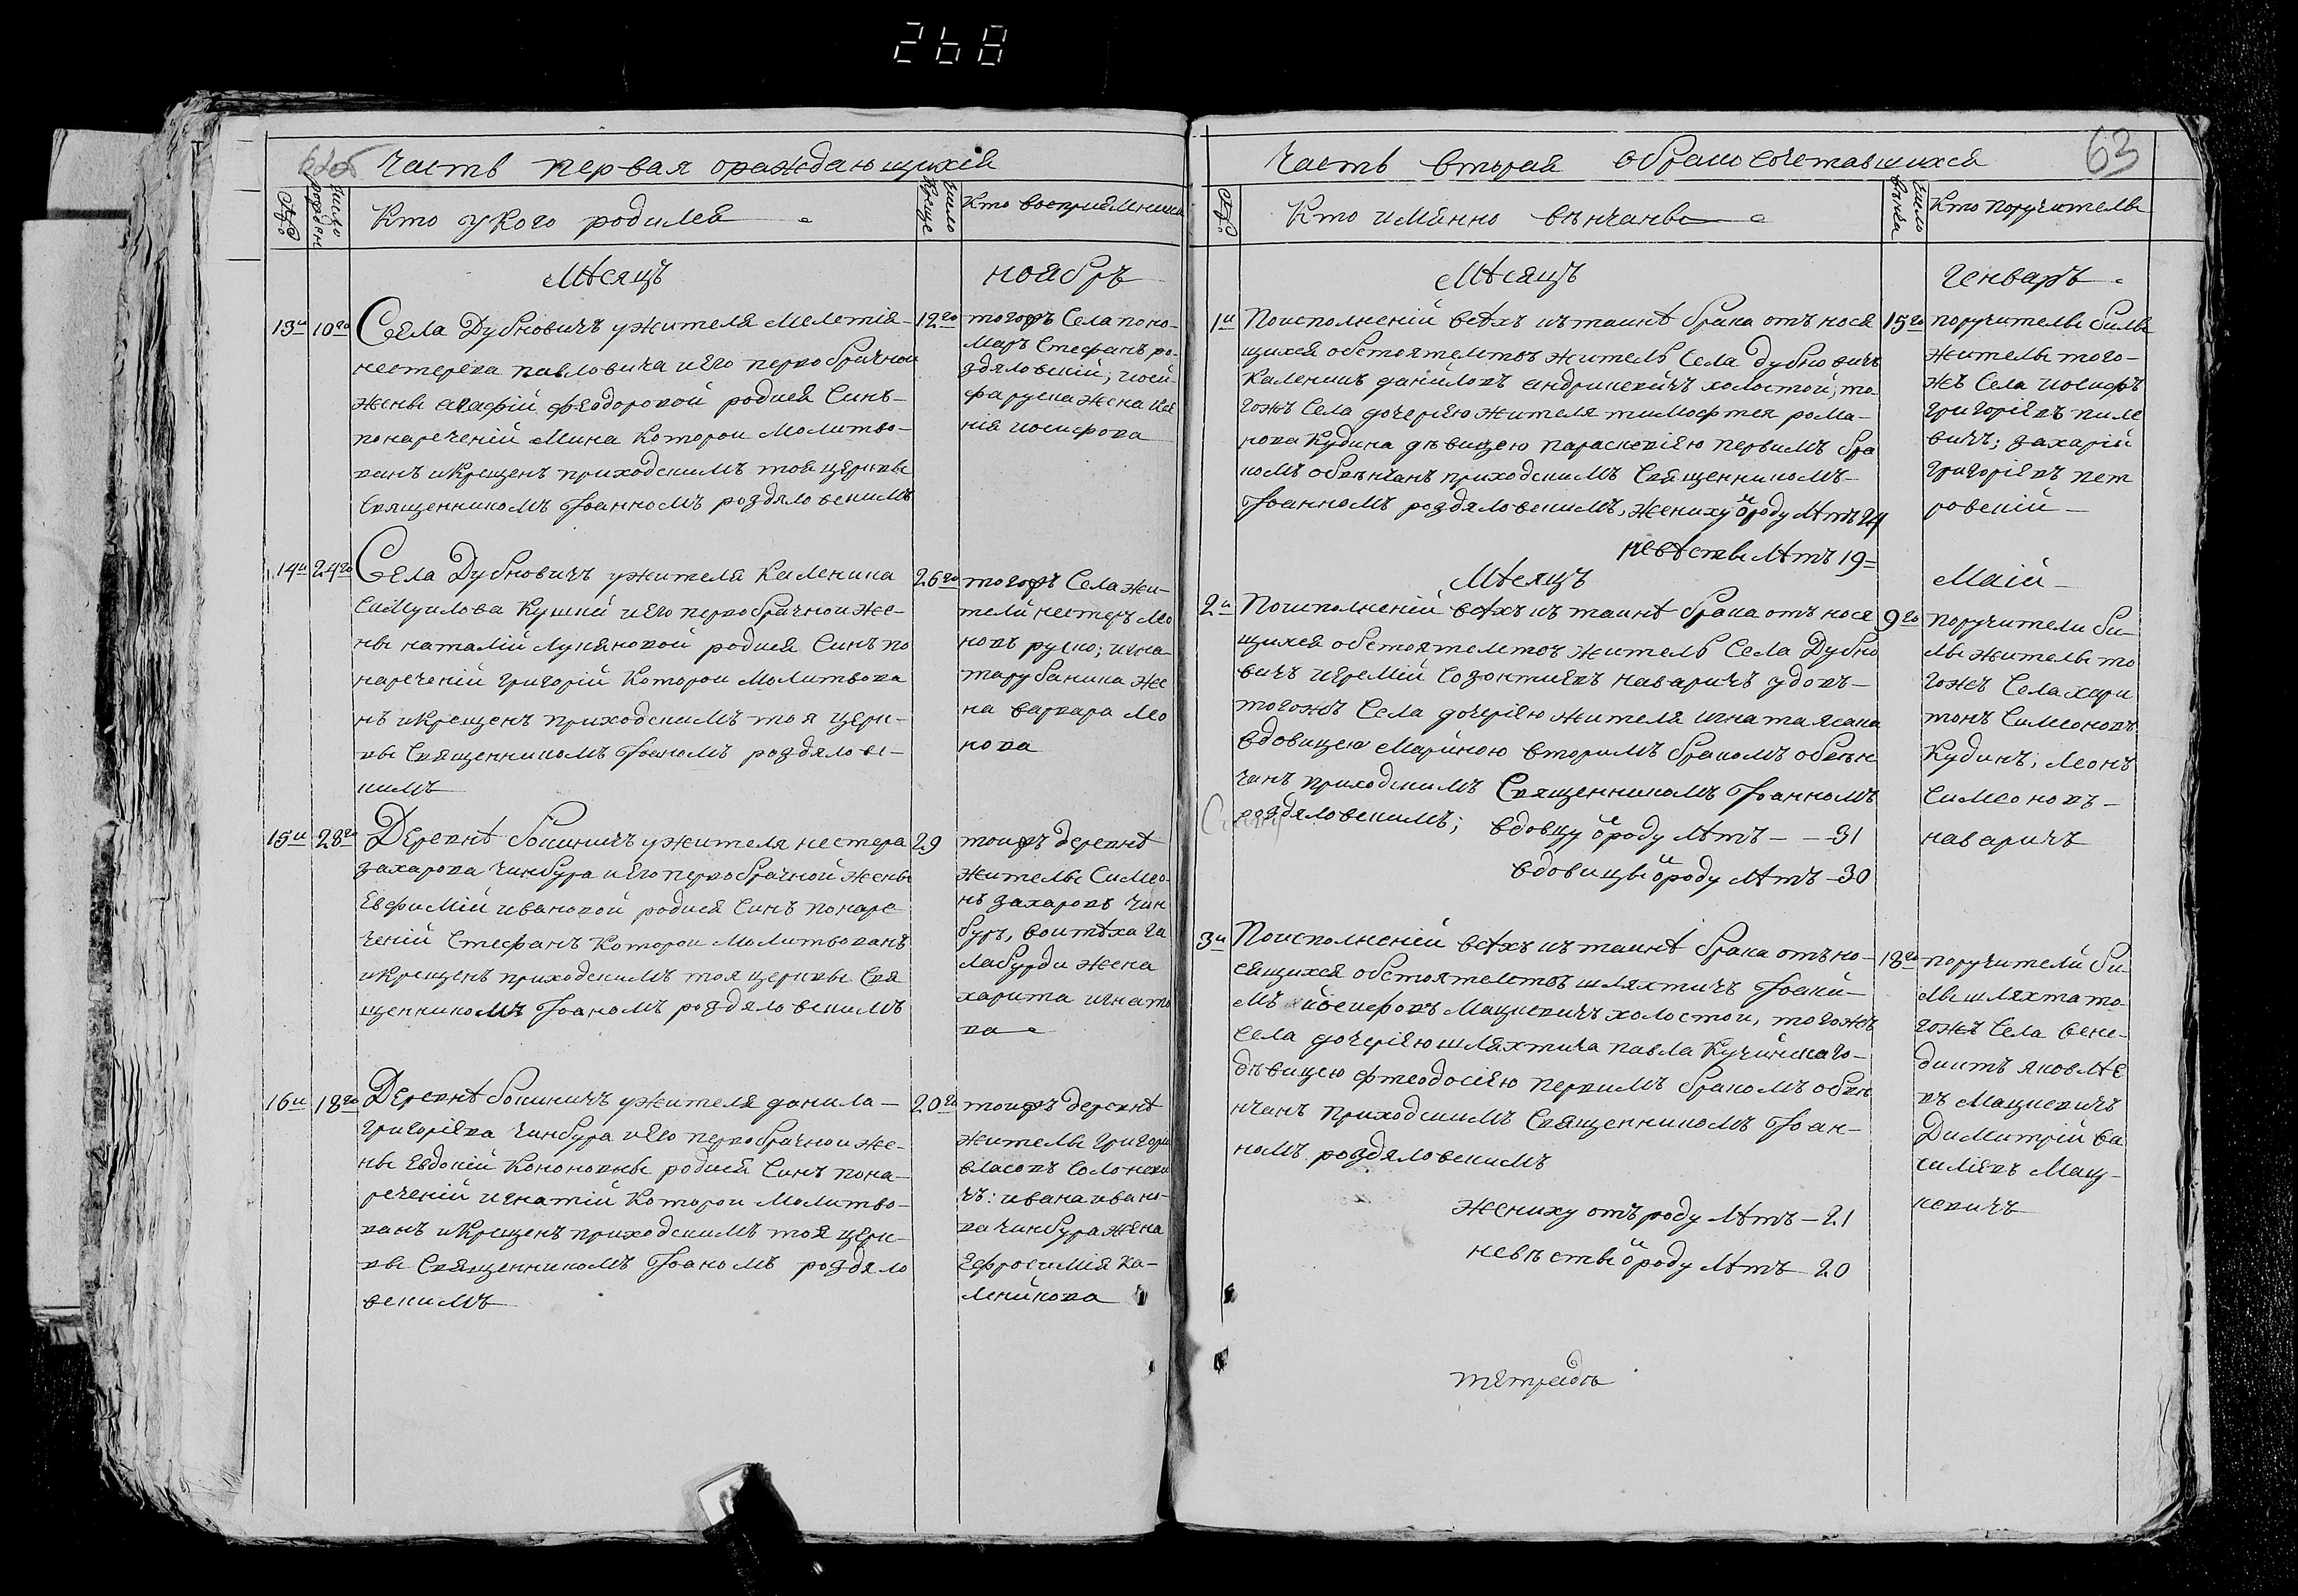 268
Часть первая ораждающихся
№
число рожден
Кто укого родился
число креще
Кто восприемники
Мѣсяцъ
ноябръ
13и
10го
Села Дубновичъ ужителя Мелетія
нестерева павловича иего первобрачной
жены агафіи феодоровой родися Синъ
понареченій Мина Которои Молитво-
ванъ иКрещенъ приходскимъ тоя церквы
Священникомъ Іоанномъ роздяловскимъ
12го
тогожъ Села поно-
маръ Стефанъ ро-
здяловскій; иоси-
фа руска жена Ксе
нія иосифова
14и
24го
Села Дубновичъ ужителя Каленика
Самуилова Кушнй иего первобрачнои же-
ны наталіи Лукяновой родися Синъ по
нареченій григорій Которои Молитвова
нъ иКрещенъ приходскимъ тоя церк-
вы Священникомъ Іоаномъ роздяловс-
кимъ
26го
тогожъ Села жи-
тели нестеръ Лео
новъ руско; игна-
та рубаника же
на варвара Лео
нова
15и
28го
Деревнѣ бокиничъ ужителя нестера
захарова чикбура иего первобрачной жены
Евфиміи ивановой родися Синъ понаре
ченій Стефанъ Которои Молитвованъ
иКрещенъ приходскимъ тоя церквы Свя
щенникомъ Іоаномъ роздяловскимъ
29
тоижъ деревнѣ
жителы Симео-
нъ захаровъ чик
буръ, воитѣха га
лабурди жена
харита игнато
ва
16и
18го
Деревнѣ бокиничъ ужителя данила
григоріева чикбура иего первобрачнои же-
ны Евдокіи Кононовны родися Синъ пона-
реченій игнатій Которои Молитво-
ванъ иКрещенъ приходскимъ тоя церк-
вы Священникомъ Іоаномъ роздяло
вскимъ
20го
тоижъ деревнѣ
жителы григори
власовъ Солоневи
чъ: ивана ивано-
ва чикбура жена
Ефросимія Ка-
леникова
63
Часть вторая обракосочетавшихся
№
число вѣнча
Кто имянно вѣнчаны
Кто поручителы
Мѣсяцъ
генваръ
1и
Поисполненій всѣхъ къ таинѣ брака отънося
щихся обстоятелствъ житель Села дубновичъ
Каленикъ даниловъ андрикевичъ холостой, то-
гожъ Села дочеріею жителя тимофтея рома-
нова Кудина дѣвицею параскевіею первимъ бра
комъ обвѣнчанъ приходскимъ Священникомъ
Іоанномъ роздяловскимъ, жениху ѿ роду лѣтъ 24
невѣсты лѣтъ 19
15го
поручителы билы
жителы того-
жъ Села иосифъ
григоріевъ пиле
вичъ; захарій
григоріевъ пет
ровскій
Мѣсяцъ
Маій
2и
Поисполненій всѣхъ къ таинѣ брака отънося
щихся обстоятелствъ житель Села Дубно
вичъ иеремій Созонтиевъ наваричъ удовъ
тогожъ Села дочеріею жителя игната ясака
вдовицею Мариною вторимъ бракомъ обвѣн
чанъ приходскимъ Священникомъ Іоанномъ
роздяловскимъ; вдовцу ѿ роду лѣтъ 31
вдовицы ѿ роду лѣтъ 30
9го
поручители би-
лы жителы то
гожъ Села хари
тонъ Симеоновъ
Кудинъ; Леонъ
Симеоновъ
наваричъ
3и
Поисполненій всѣхъ къ таинѣ брака отъно-
сящихся обстоятелствъ шляхтичъ Іоаки-
мъ иосифовъ Мацкевичъ холостои, тогожъ
села дочеріею шляхтича павла Кучинскаго
дѣвицею фтеодосіею первимъ бракомъ обвѣ
нчанъ приходскимъ Священникомъ Іоан-
номъ роздяловскимъ
жениху отъ роду лѣтъ 21
невѣсты ѿ роду лѣтъ 20
18го
поручители би-
лы шляхта то-
гожъ Села Бене-
диктъ яковлѣе
въ Мацкевичъ
Димитрій ва
силіевъ Мац-
кевичъ
тетрадь